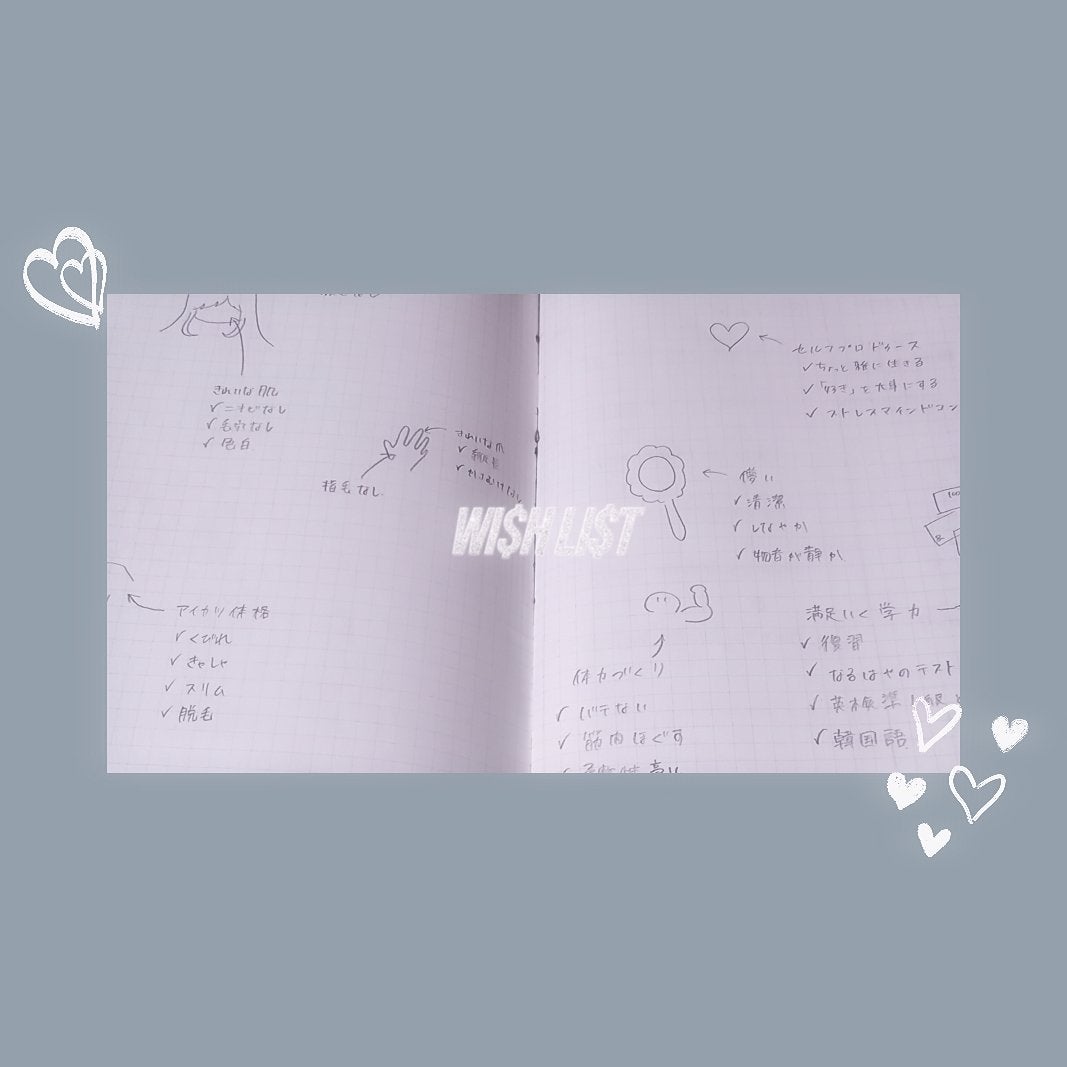 きれいな肌
✓ ニキビなし
✓ 毛穴なし
✓ 色白
指毛なし
きれいな爪
✓ 縦長
アイカツ体格
✓ くびれ
✓ きゃしゃ
✓ スリム
✓ 脱毛
WI$H LI$T
セルフプロデュース
✓ ちょっと雑に生きる
✓ 「好き」を大事にする
✓ ストレスマインドコン
儚い
✓ 清潔
✓ しなやか
✓ 物音が静か
体力づくり
✓ バテない
✓ 筋肉ほぐす
高い
満足いく学力
✓ 復習
✓ なるはやのテスト
✓ 英検準1級
✓ 韓国語